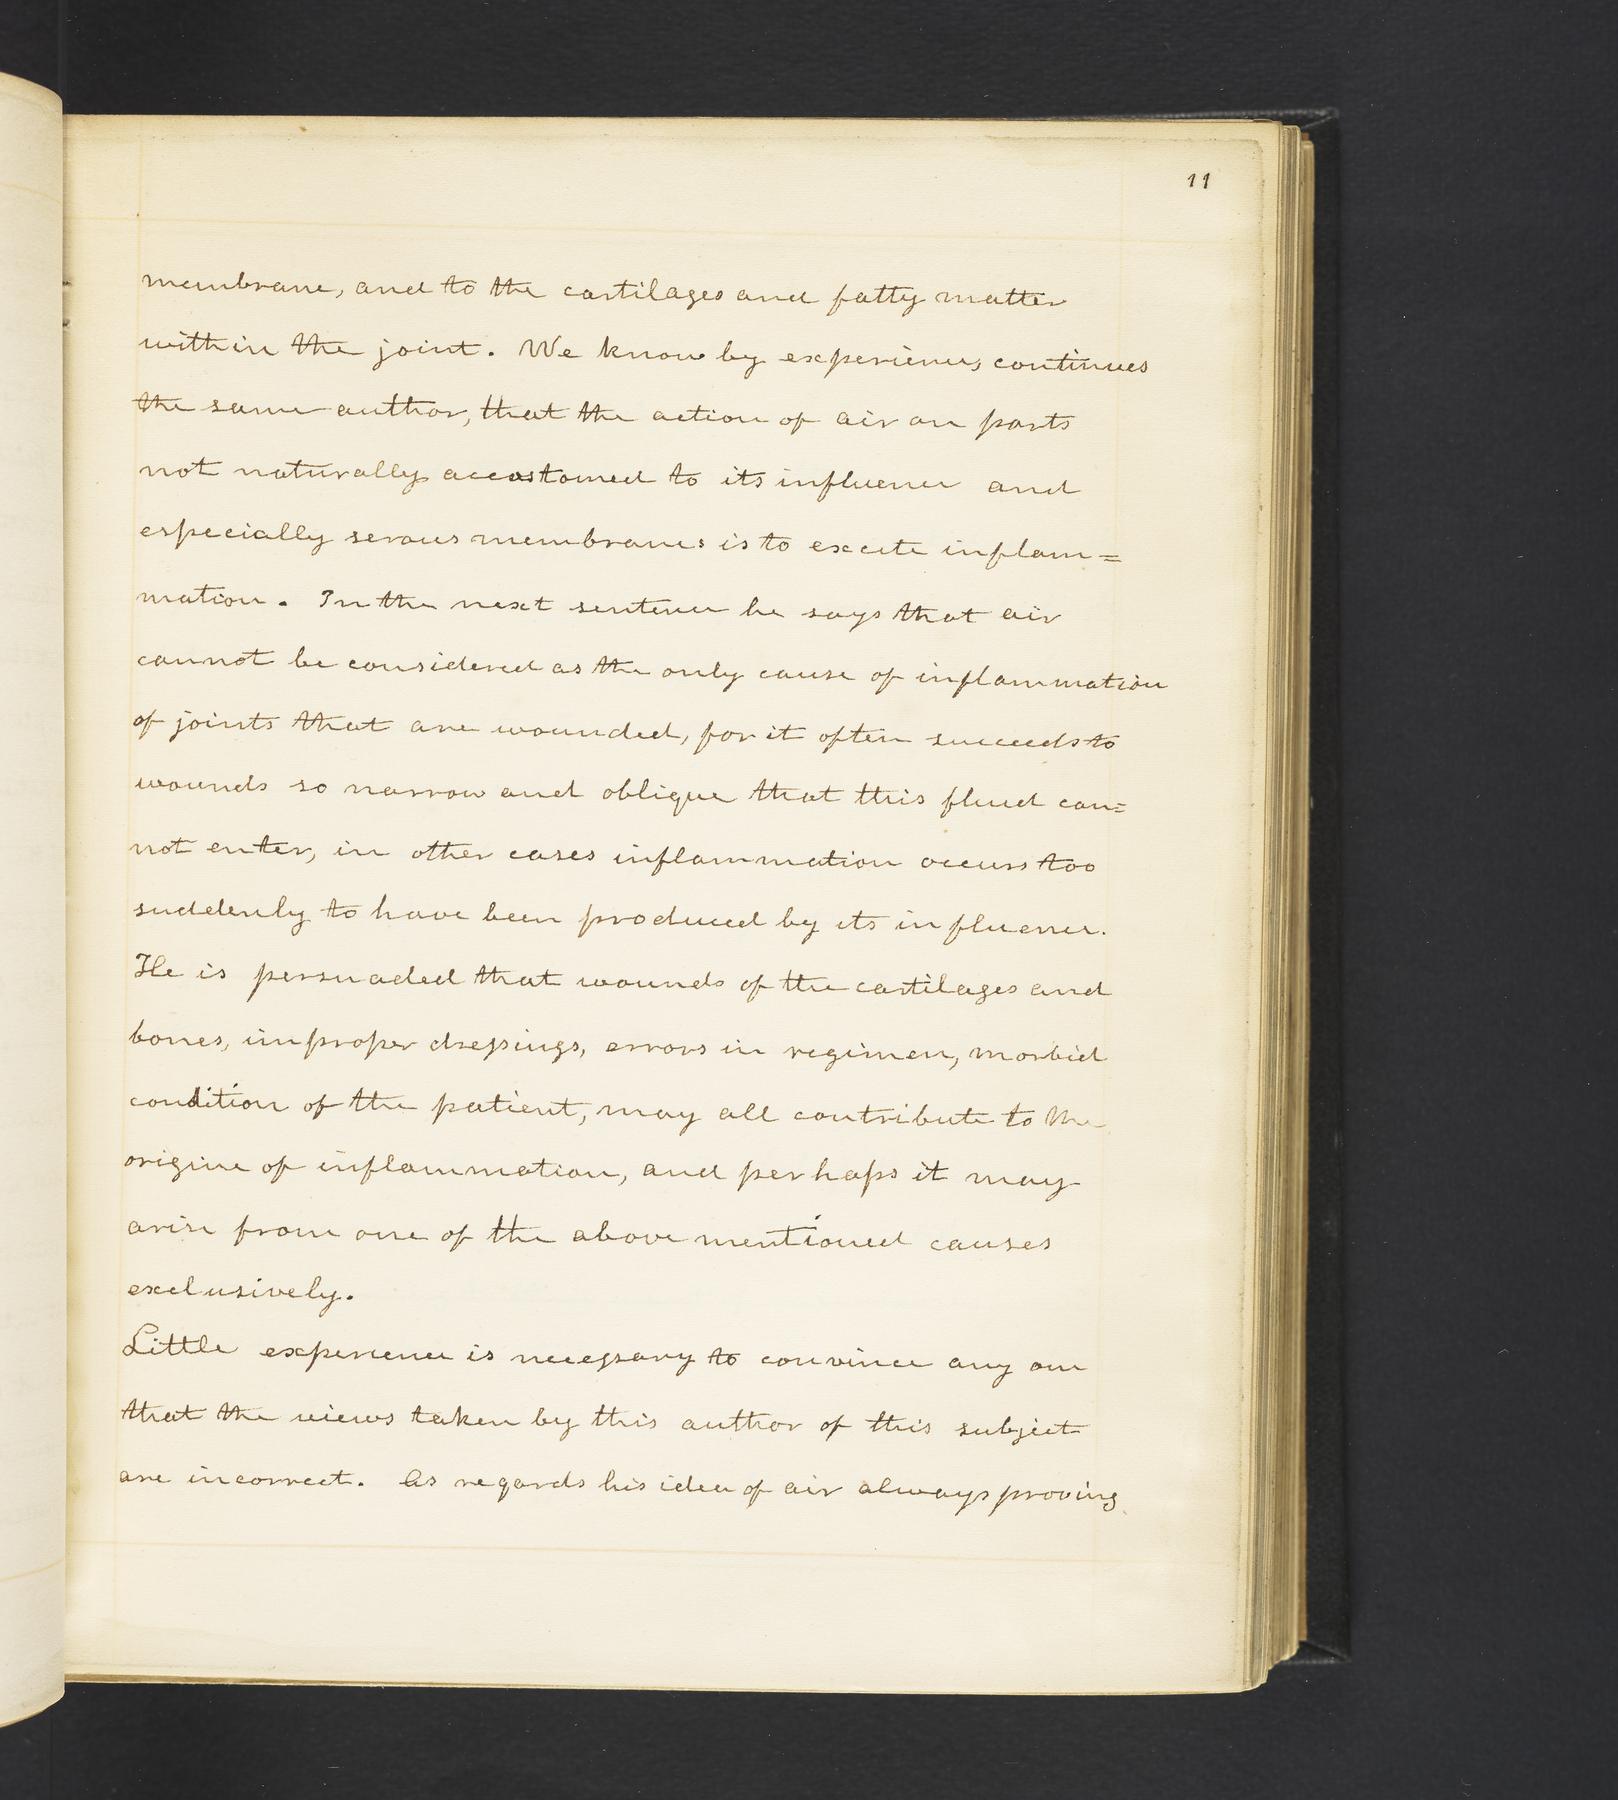 11
membrane, and to the cartilages and fatty matter
within the joint. We know by experience, continues
the same author, that the action of air on parts
not naturally accustomed to its influence and
especially serous membranes is to excite inflam=
mation. In the next sentence he says that air
cannot be considered as the only cause of inflammation
of joints that are wounded, for it often succeeds to
wounds so narrow and oblique that this fluid can=
not enter, in other cases inflammation occurs too
suddenly to have been produced by its influence.
He is persuaded that wounds of the cartilages and
bones, improper dressings, errors in regimen, morbid
condition of the patient, may all contribute to the
origine of inflammation, and perhaps it may
arise from one of the above mentioned causes
exclusively.
Little experience is necessary to convince any one
that the views taken by this author of this subject
are incorrect. As regards his idea of air always proving